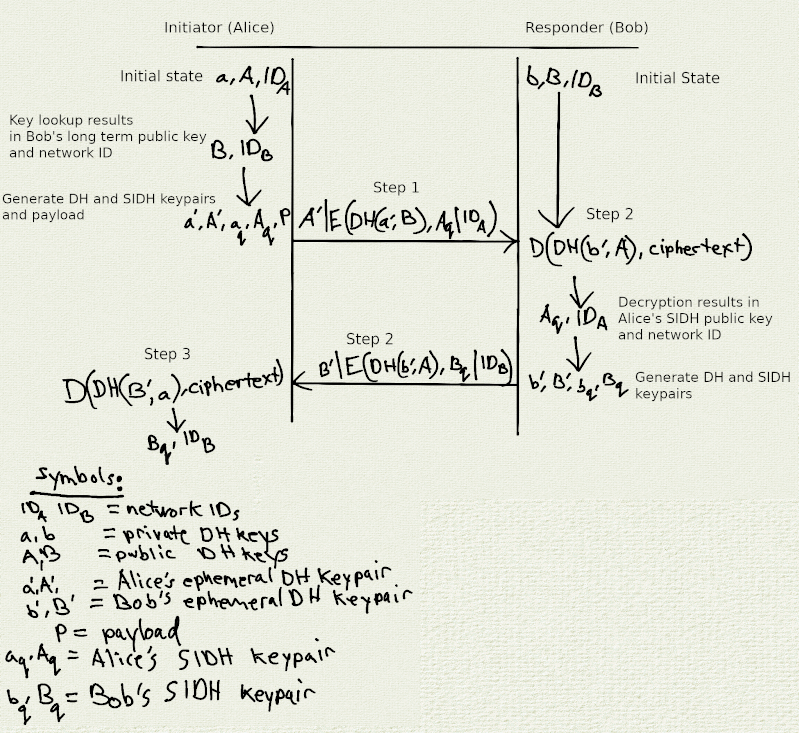 Initiator (Alice)
Responder (Bob)
Initial state a, A, ID_A
b, B, ID_B Initial State
Key lookup results
in Bob's long term public key
and network ID
B, ID_B
Generate DH and SIDH keypairs
and payload
a', A', a_q, A_q, P
Step 1
A'|E(DH(a', B), A_q|ID_A)
Step 2
D(DH(b', A), ciphertext)
A_q, ID_A
Decryption results in
Alice's SIDH public key
and network ID
b', B', b_q, B_q
Generate DH and SIDH
keypairs
Step 2
B'|E(DH(b', A), B_q|ID_B)
Step 3
D(DH(B', a), ciphertext)
B_q, ID_B
Symbols:
ID_A ID_B = network IDs
a, b = private DH keys
A, B = public DH keys
a', A', = Alice's ephemeral DH Keypair
b', B' = Bob's ephemeral DH Keypair
P = payload
a_q, A_q = Alice's SIDH keypair
b_q, B_q = Bob's SIDH keypair